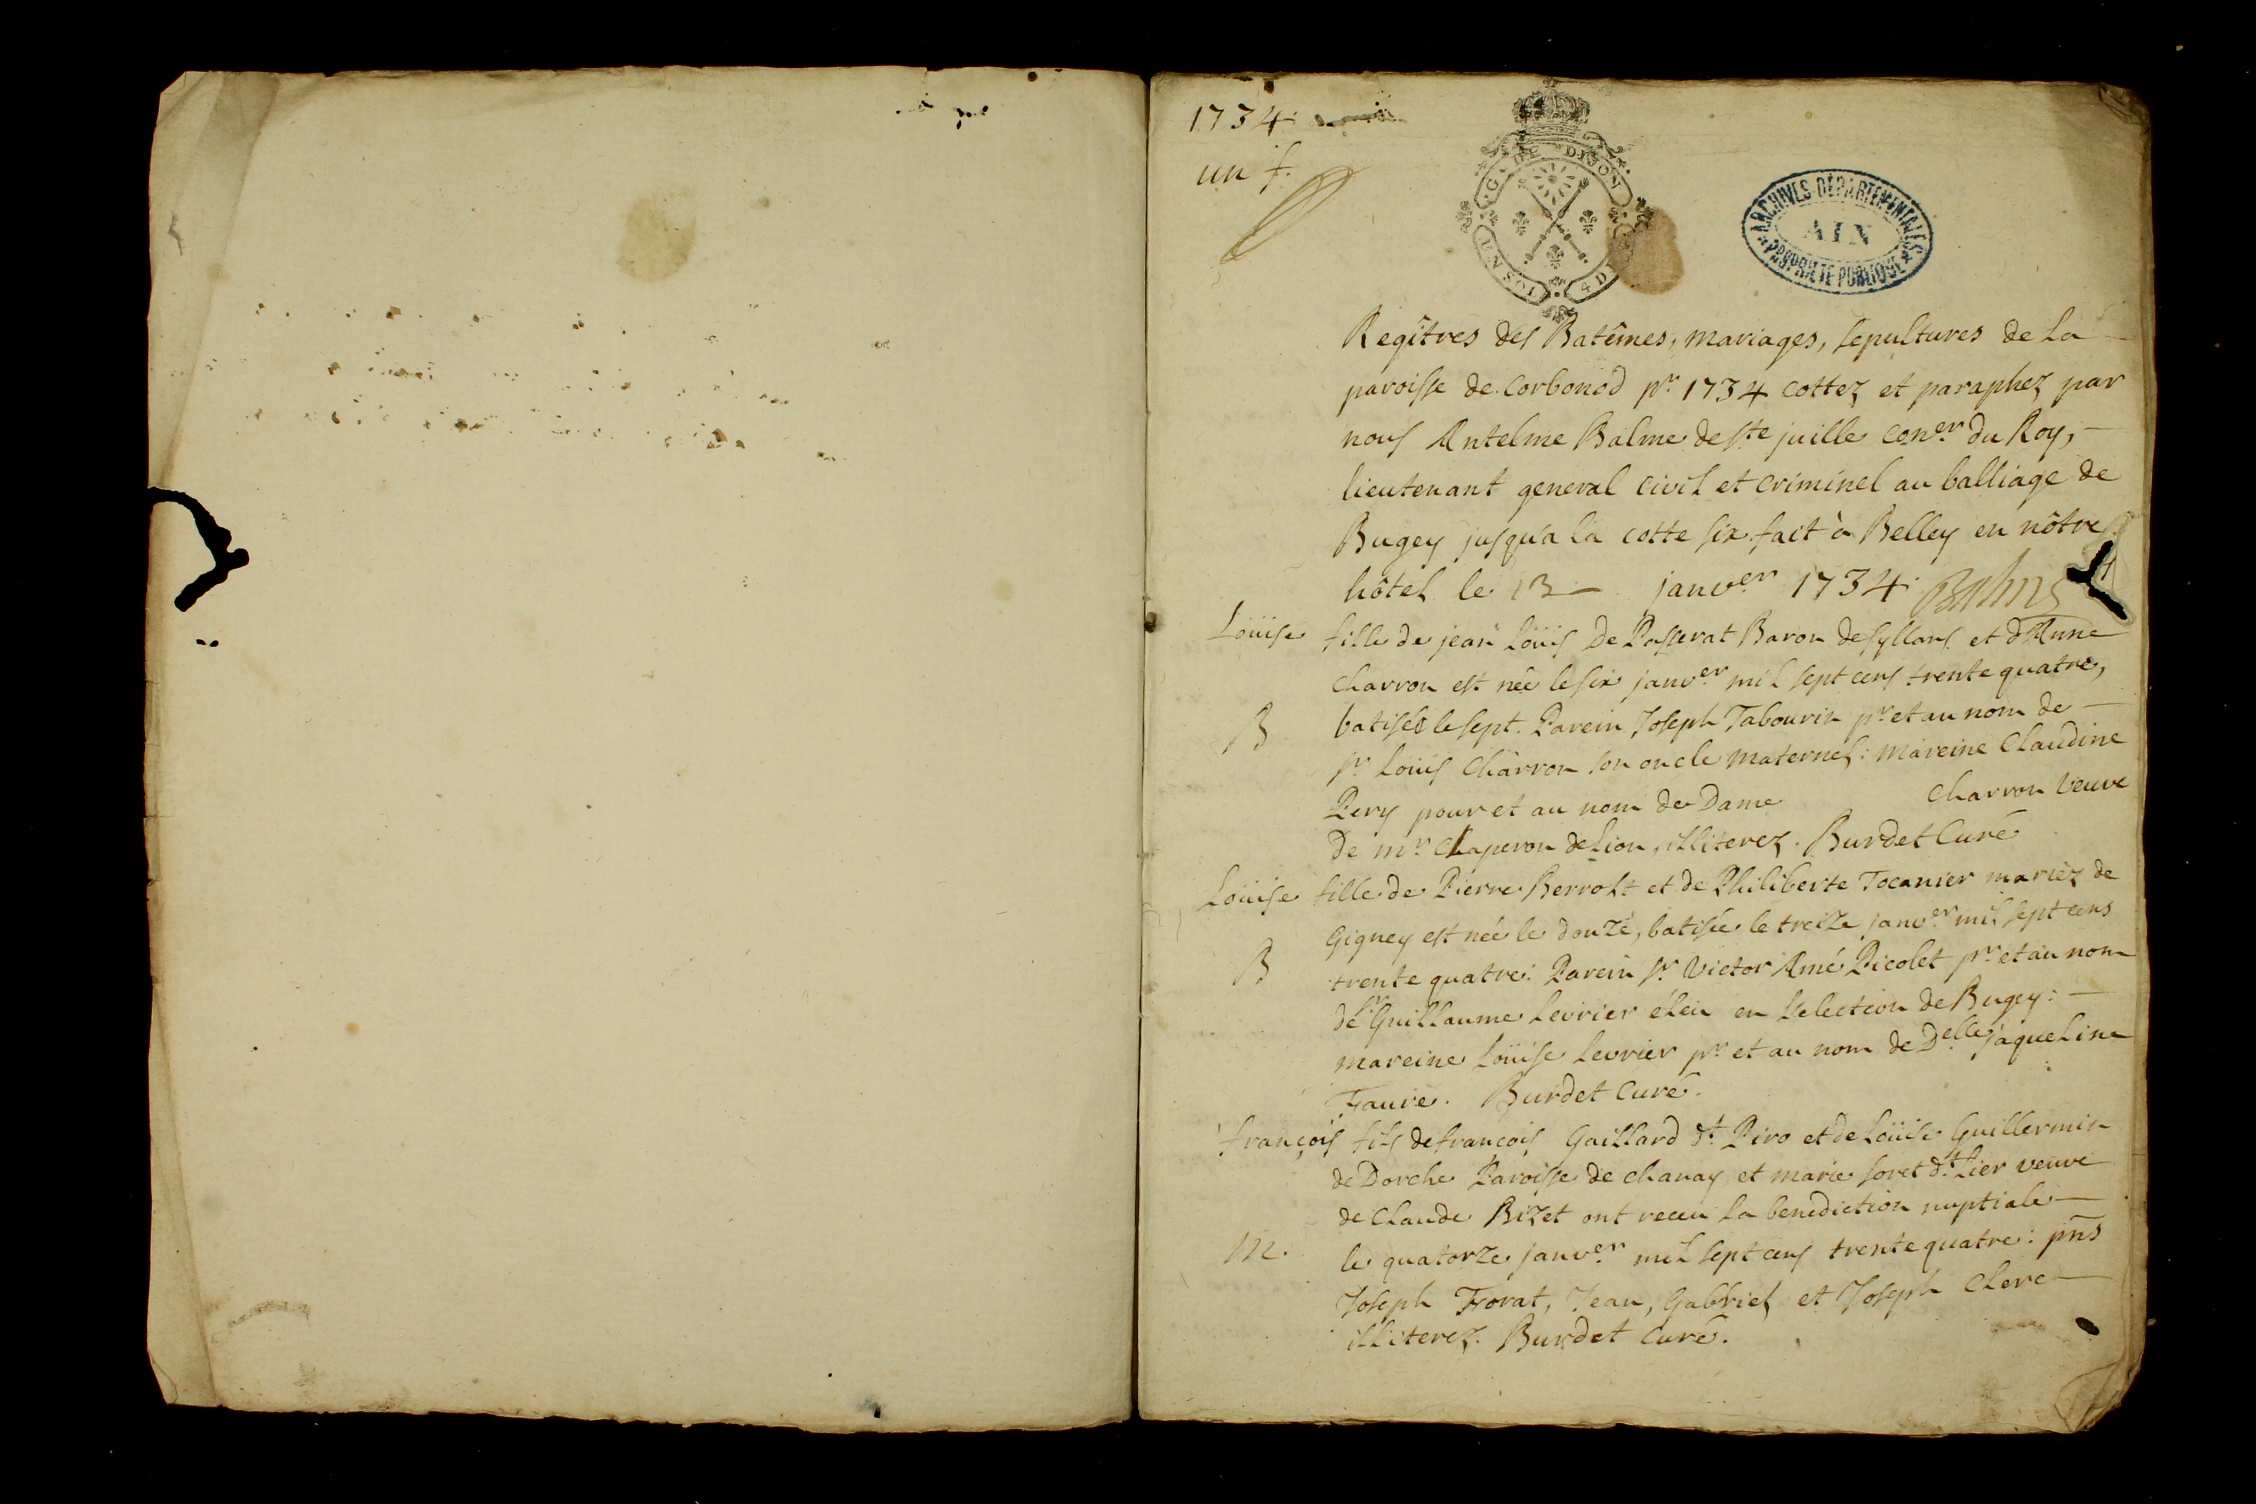 1734.
un f.
G. DE DIJON
UN SOL
4 D
ARCHIVES DÉPARTEMENTALES
AIN
PROPRIÉTÉ PUBLIQUE
Regîtres des Batêmes, mariages, sepultures de La
paroisse de Corbonod pr 1734 cottez et paraphez par
nous Antelme Balme de ste juille coner du Roy,
lieutenant general civil et criminel au balliage de
Bugey jusqu'a la cotte six fait à Belley en nôtre
hôtel le 13 janver 1734. Balme
Loüise fille de jean Loüis De Passerat Baron de syllans et d'Anne
Charron est née le six janver mil sept cens trente quatre,
B batisée le sept. Parein Joseph Tabourin pr et au nom de
sr Loüis Charron son oncle maternel: mareine Claudine
Pery pour et au nom de Dame Charron Veuve
De mr Chaperon de Lion, illiterez. Burdet Curé
Loüise fille de Pierre Berrolt et de Philiberte Tocanier mariéz de
Gigney est née le douze, batisée le treize janver mil sept cens
B trente quatre: Parein sr Victor Amé Picolet pr et au nom
de sr Guillaume Levrier éleu en l'election de Bugey:
mareine Loüise Levrier pr et au nom de Delle jaqueline
Favre. Burdet Curé.
françois fils de françois Gaillard dt Piro et de Loüise Guillermin
de Dorche Paroisse de chanay et marie soret dt Lier veuve
de Claude Bizet ont receu la benediction nuptiale
M. le quatorze janver mil sept cens trente quatre: pñs
Joseph Forat, Jean, Gabriel et Joseph Clerc
illiterez. Burdet curé.